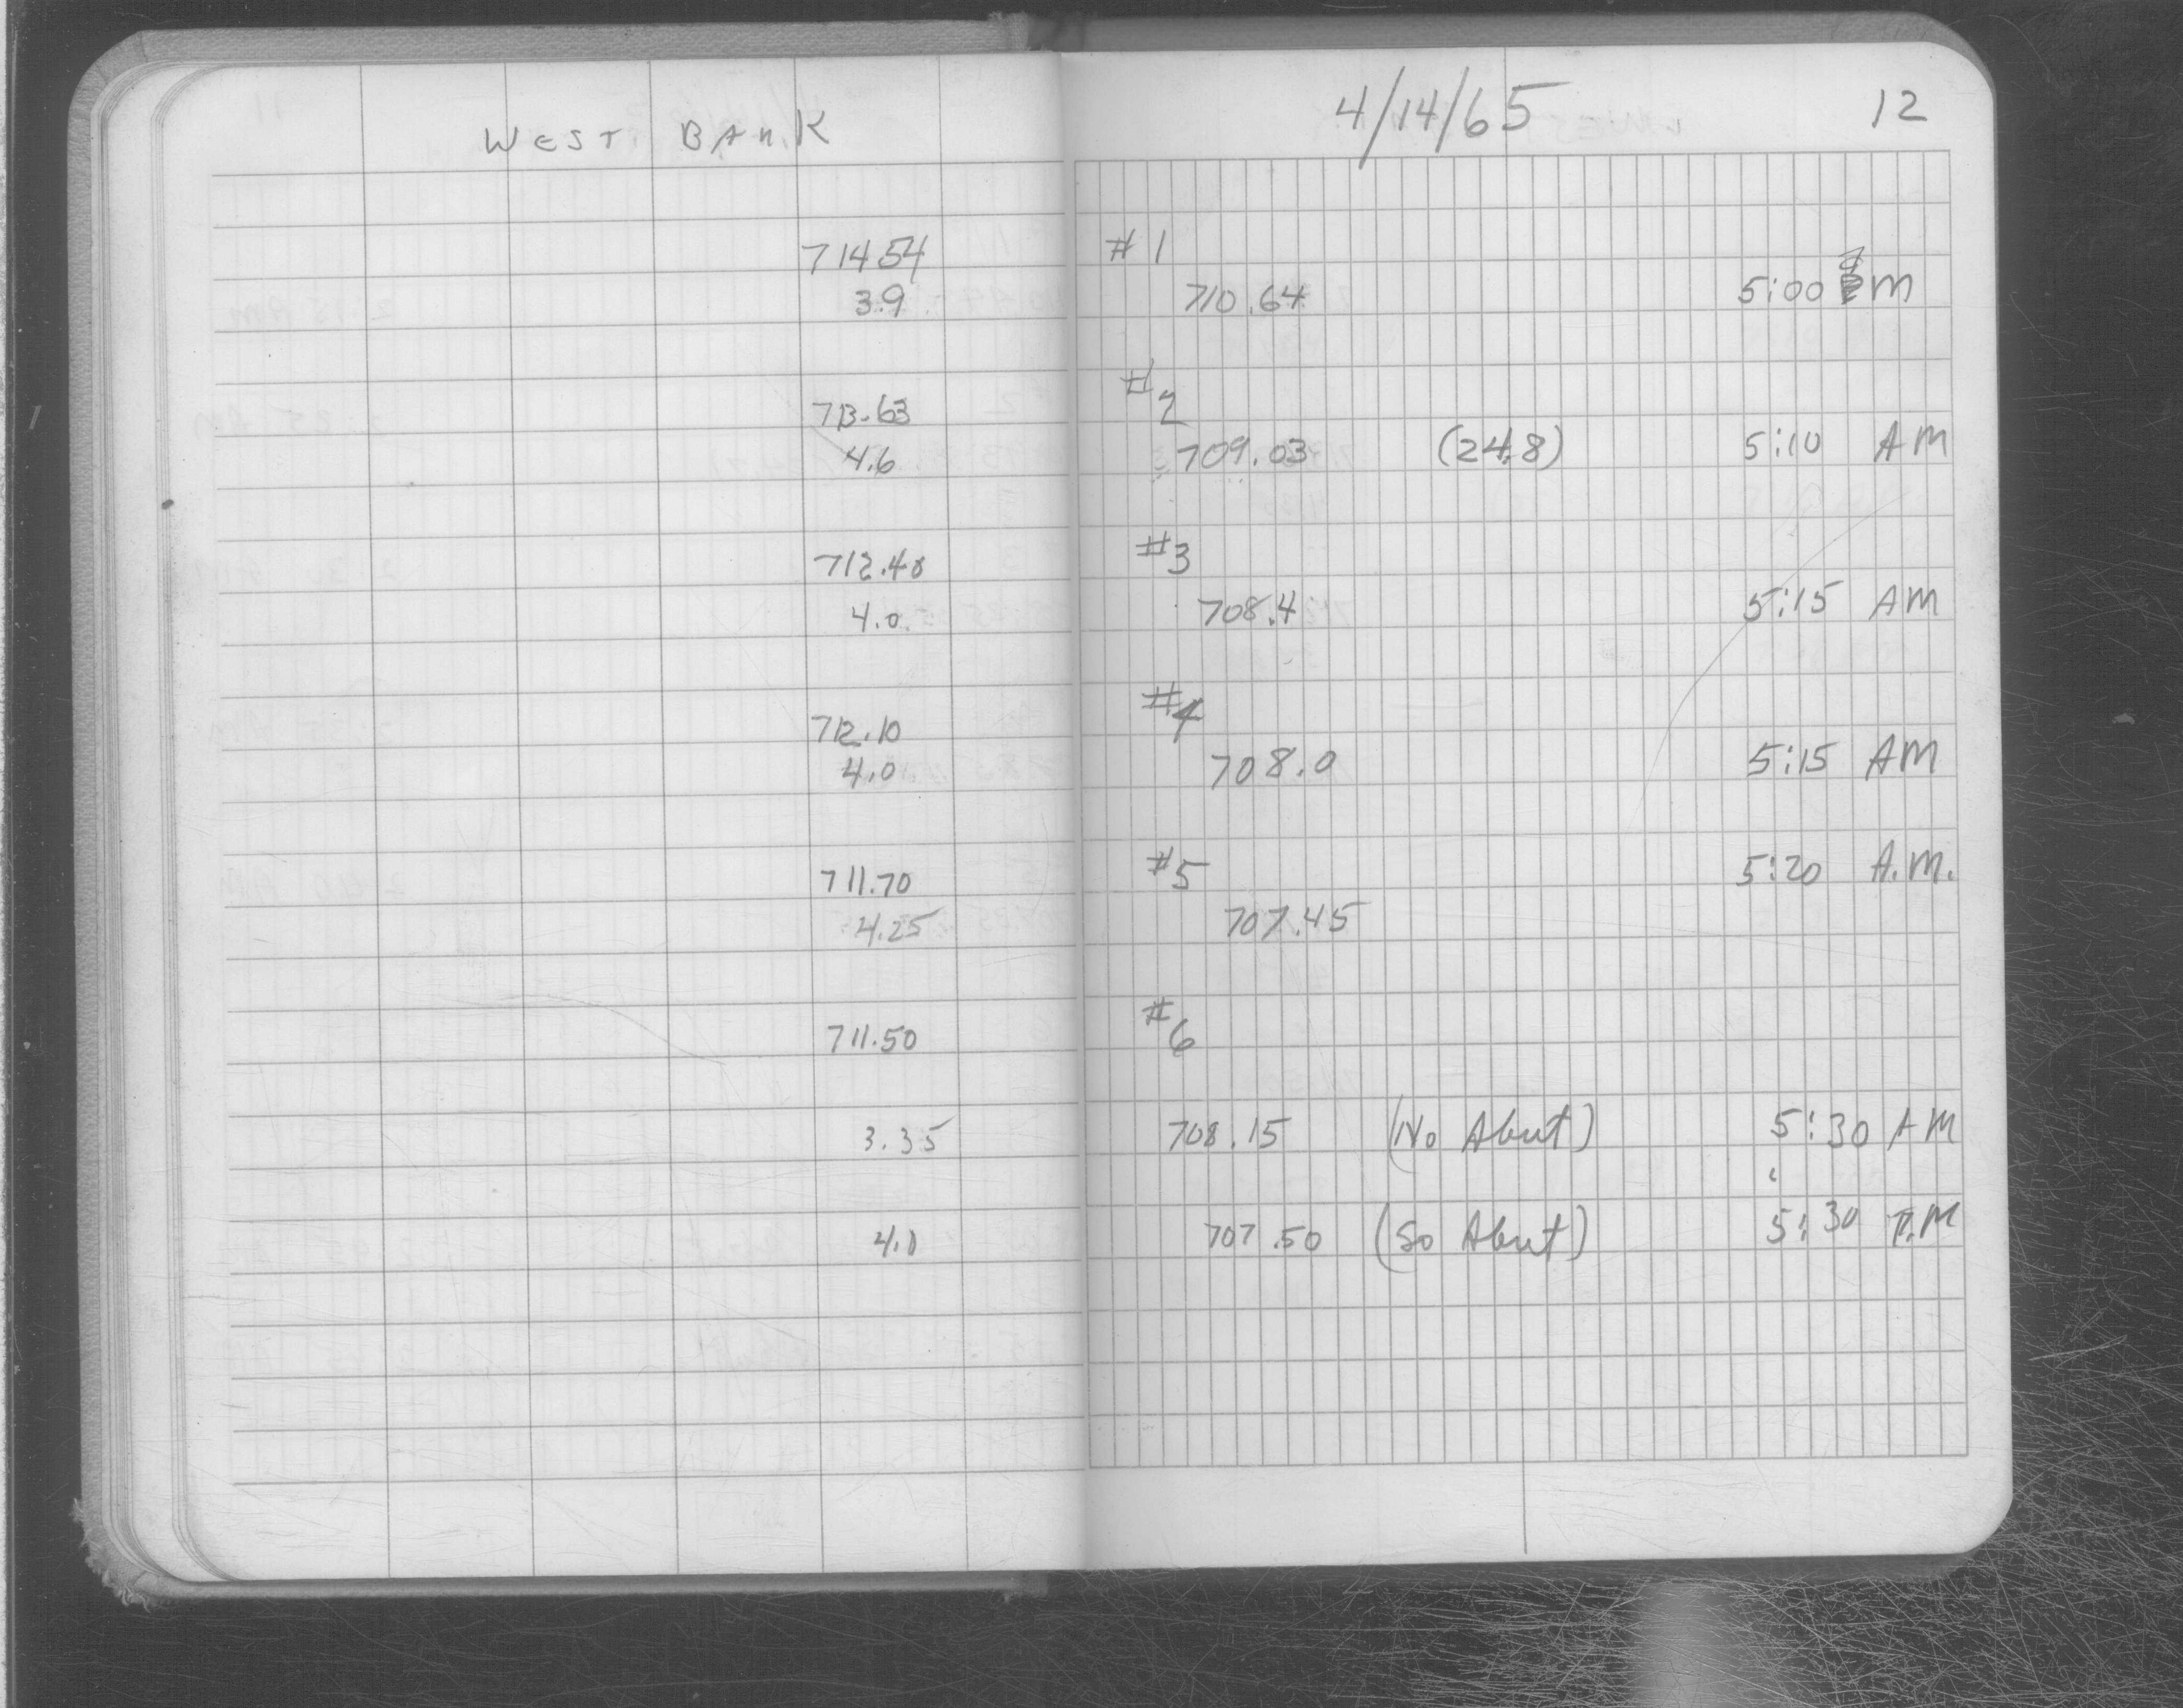 WEST BANK
4/14/65 12
71454 #1
3.9 710.64 5:00 M
713.63 #2
4.6 709.03 (24.8) 5:10 AM
712.40 #3
4.0 708.4 5:15 AM
712.10 #4
4.0 708.0 5:15 AM
711.70 #5 5:20 A.M.
4.25 707.45
711.50 #6
3.35 708.15 (No Abut) 5:30 AM
4.0 707.50 (So Abut) 5:30